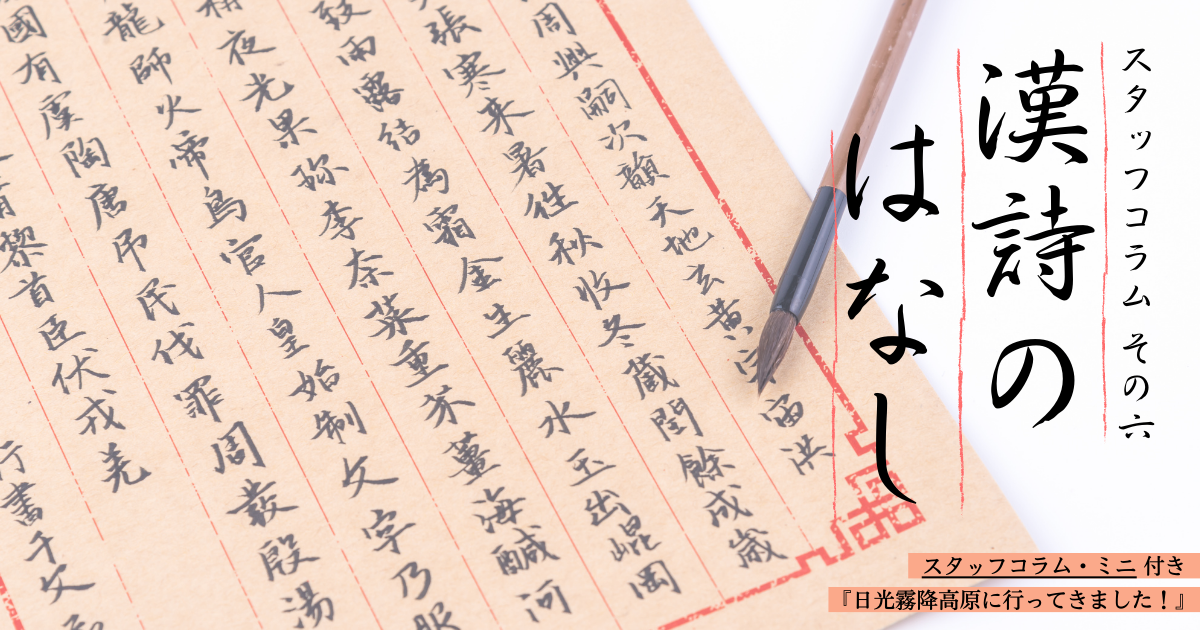 スタッフコラム その六
漢詩の
はなし
スタッフコラム・ミニ 付き
『日光霧降高原に行ってきました！』
周興嗣次韻天地玄黄宇宙洪
張寒来暑往秋收冬蔵閏餘成歲
致雨露結為霜金生麗水玉出崐岡
稱夜光果珍李柰菜重芥薑海醎河
龍師火啼鳥官人皇始制文字乃服
國有虞陶唐吊民伐罪周發殷湯
育黎首臣伏戎羌
行書千文